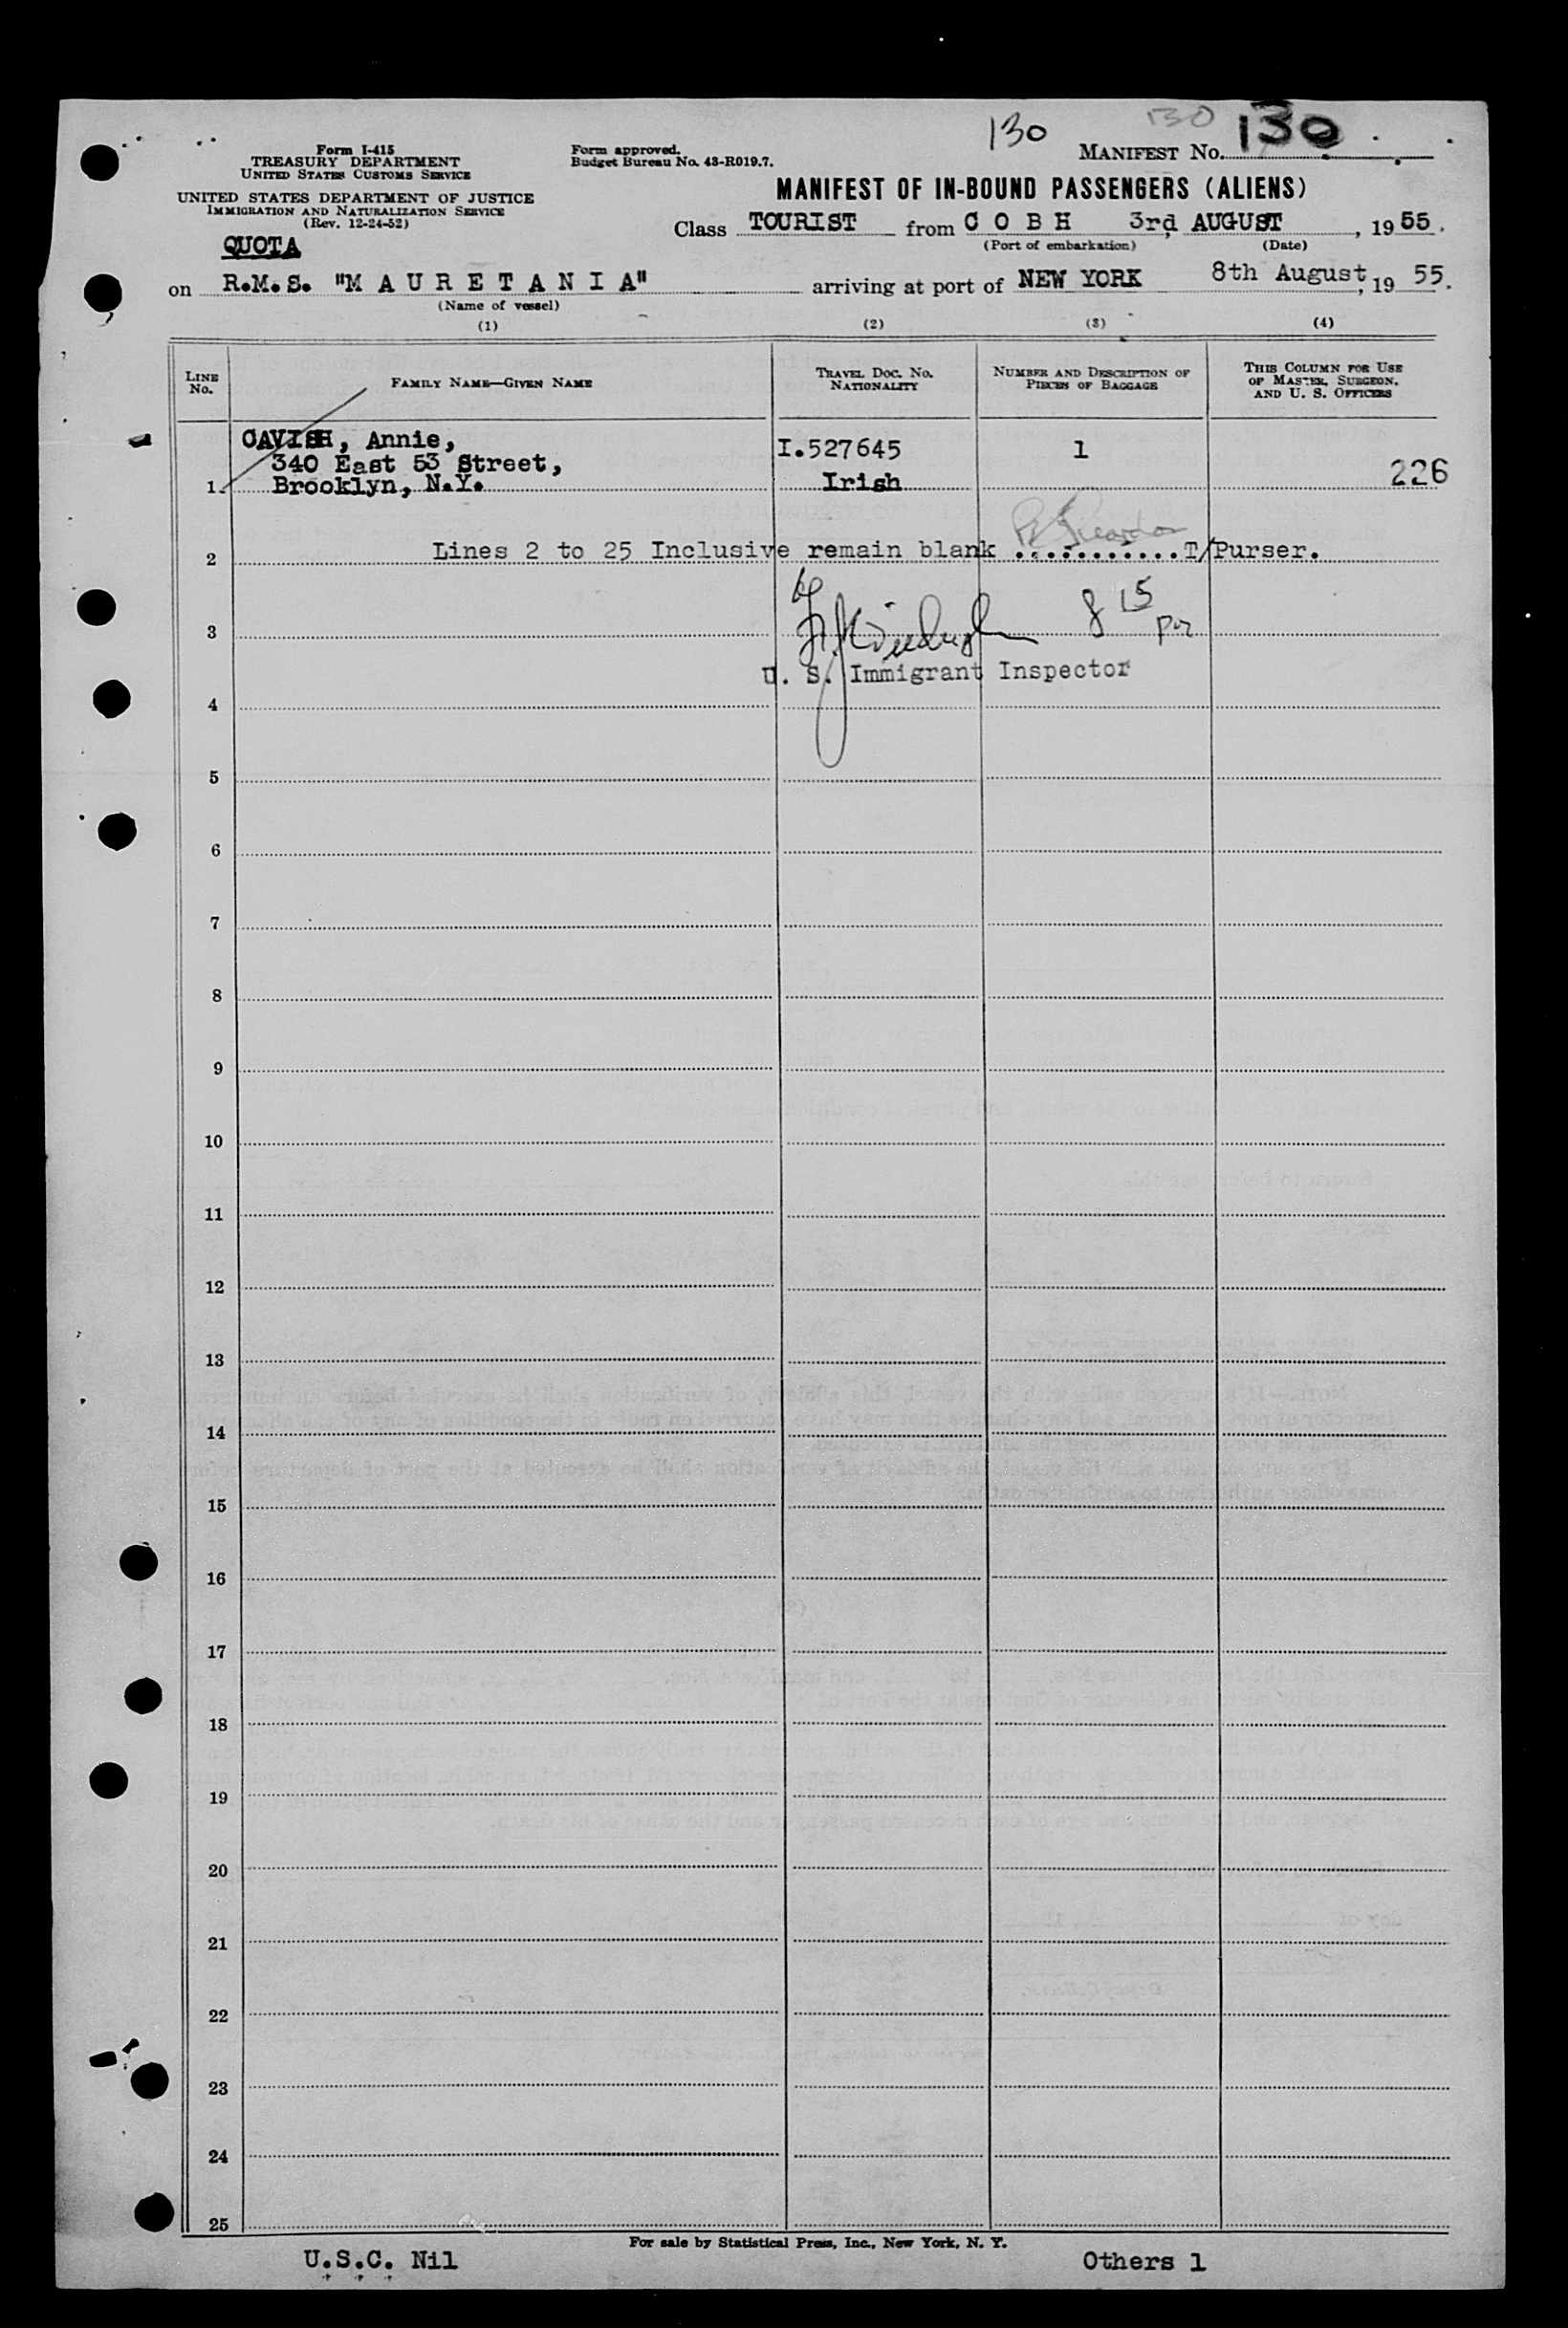 130 130 130
Form I-415
TREASURY DEPARTMENT
UNITED STATES CUSTOMS SERVICE
Form approved.
Budget Bureau No. 43-R019.7.
MANIFEST NO.
UNITED STATES DEPARTMENT OF JUSTICE
IMMIGRATION AND NATURALIZATION SERVICE
(Rev. 12-24-52)
MANIFEST OF IN-BOUND PASSENGERS (ALIENS)
Class TOURIST from C O B H 3rd AUGUST, 1955.
(Port of embarkation) (Date)
QUOTA
on R.M.S. "M A U R E T A N I A" arriving at port of NEW YORK 8th August, 1955.
(Name of vessel)
(1) (2) (3) (4)
LINE No.
FAMILY NAME—GIVEN NAME
TRAVEL DOC. NO.
NATIONALITY
NUMBER AND DESCRIPTION OF
PIECES OF BAGGAGE
THIS COLUMN FOR USE
OF MASTER, SURGEON,
AND U. S. OFFICERS
CAVISH, Annie, I.527645 1
340 East 53 Street,
1 Brooklyn, N.Y. Irish 226
2 Lines 2 to 25 Inclusive remain blank ...........T/Purser.
3 8 15
U. S. Immigrant Inspector
4
5
6
7
8
9
10
11
12
13
14
15
16
17
18
19
20
21
22
23
24
25
For sale by Statistical Press, Inc., New York, N. Y.
U.S.C. Nil Others 1